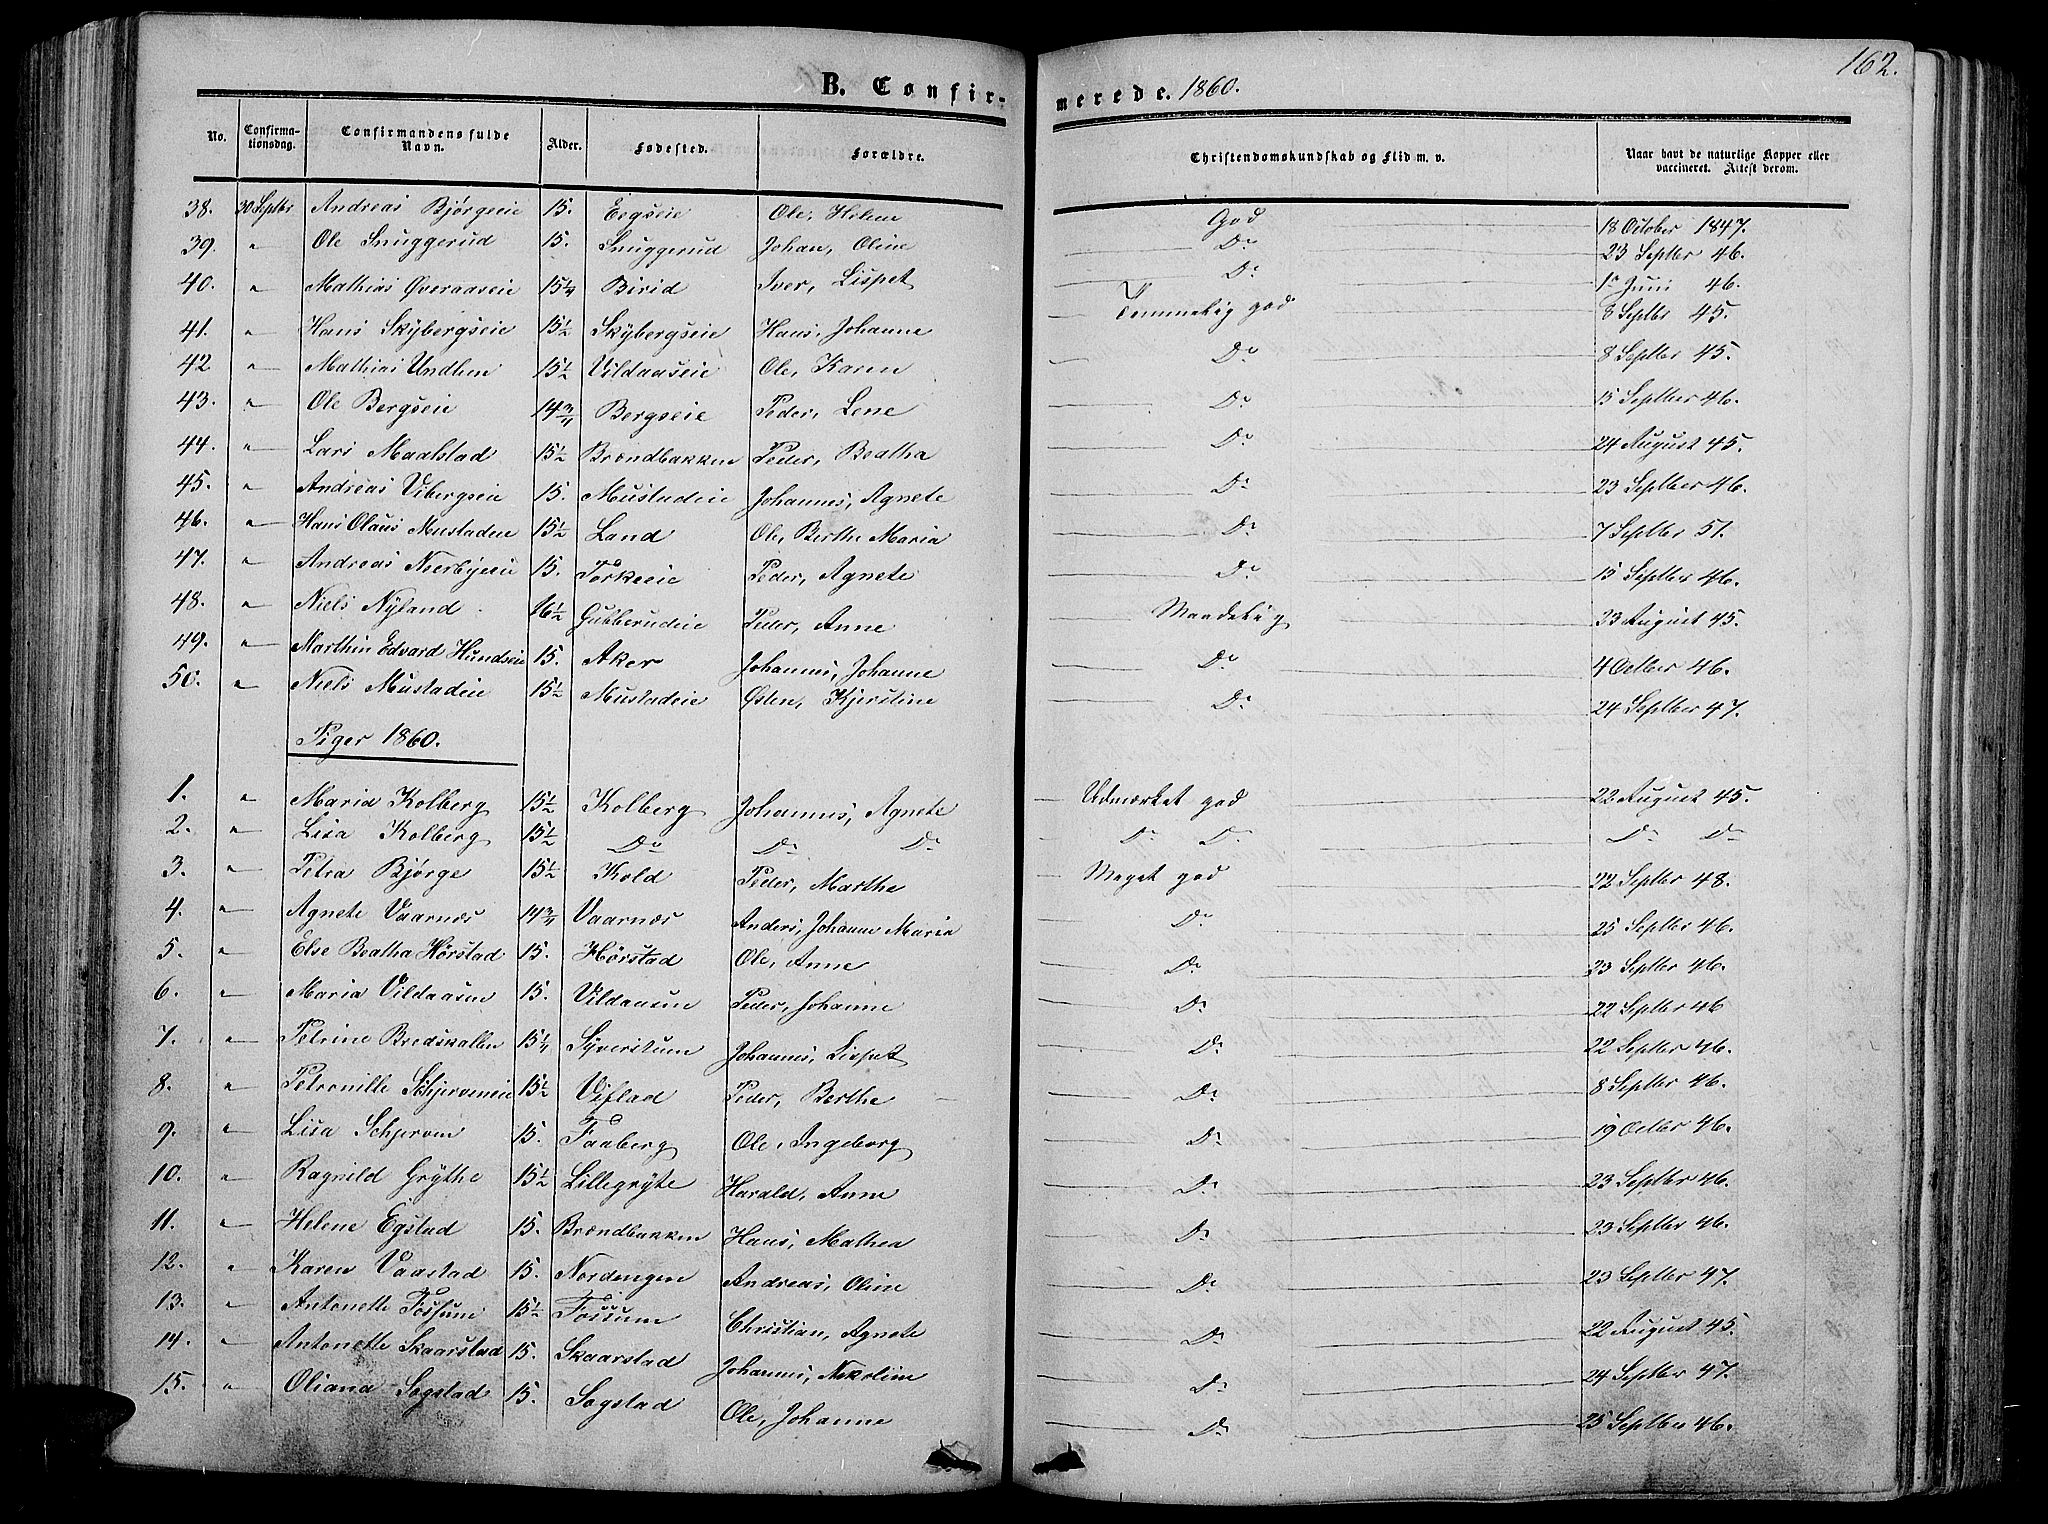 162.
B. Confirmerede. 1860.
No. Confirmationsdag. Confirmandens fulde Navn. Alder. Fødested. Forældre. Christendomskundskab og Flid m. v. Naar havt de naturlige Kopper eller vaccineret. Attest derom.
38. 30 Septbr Andreas Bjørgeeie 15. Eegseie Ole, Helene God 18 October 1847.
39. " Ole Snuggerud 15. Snuggerud Johan, Oline Do 23 Septbr 46.
40. " Mathias Øveraaseie 15 1/4 Birid Iver, Lispet Do 1e Juni 46.
41. " Hans Skÿbergseie 15 1/2 Skÿbergseie Hans, Johanne Temmelig god 8 Septbr 45.
42 " Mathias Undlien 15 1/2 Vildaaseie Ole, Karen Do 8 Septbr 45.
43. " Ole Bergseie 14 3/4 Bergseie Peder, Lene Do 15 Septbr 46.
44. " Lars Maalstad 15 1/2 Brændbakken Peder, Beatha Do 24 August 45.
45. " Andreas Vibergseie 15. Mustadeie Johannes, Agnete Do 23 Septber 46.
46. " Hans Olaus Mustadeie 15 1/2 Land Ole, Berthe Maria Do 7 Septbr 51.
47. " Andreas Neerbyeeie 15. Torkeeie Peder, Agnete Do 15 Septbr 46.
48. " Niels Nÿland 16 1/2 Gubberudeie Peder, Anne Maadelig 23 August 45.
49. " Marthin Edvard Hundseie 15. Aker Johannes, Johanne Do 4 Octbr 46.
50. " Niels Mustadeie 15 1/2 Mustadeie Østen, Kjerstine Do 24 Septbr 47.
Piger 1860.
1. " Maria Kolberg 15 1/2 Kolberg Johannes, Agnete Udmærket god 22 August 45.
2. " Lisa Kolberg 15 1/2 Do Do Do Do Do Do Do
3. " Petra Bjørge 15 1/2 Kold Peder, Marthe Meget god 22 Septbr 48.
4. " Agnete Vaarnæs 14 3/4 Vaarnæs Anders, Johanne Maria Do 25 Septbr 46.
5. " Else Beatha Hørstad 15. Hørstad Ole, Anne Do 23 Septbr 46.
6. " Maria Vildaasen 15. Vildaasen Peder, Johanne Do 22 Septbr 46
7. " Petrine Bredskallen 15 1/4 Syverstuen Johannes, Lispet Do 22 Septbr 46.
8. " Petronille Schjerveneie 15 1/2 Viflad Peder, Berthe Do 8 Septbr 46.
9. " Lisa Schjerven 15. Faaberg Ole, Ingeborg Do 19 Octbr 46.
10. " Ragnild Grÿthe 15 1/2 Lillegrÿte Harald, Anne Do 23 Septbr 46.
11. " Helene Egstad 15. Brændbakken Hans, Mathea Do 23 Septbr 46.
12. " Karen Vaastad 15. Nordengen Andreas, Oline Do 23 Septbr 47.
13. " Antonette Fossum 15 1/2 Fossum Christian, Agnete Do 22 August 45.
14. " Antonette Skaarstad 15. Skaarstad Johannes, Nikoline Do 24 Septbr 47.
15. " Oliana Sogstad 15. Sogstad Ole, Johanne Do 25 Septbr 46.